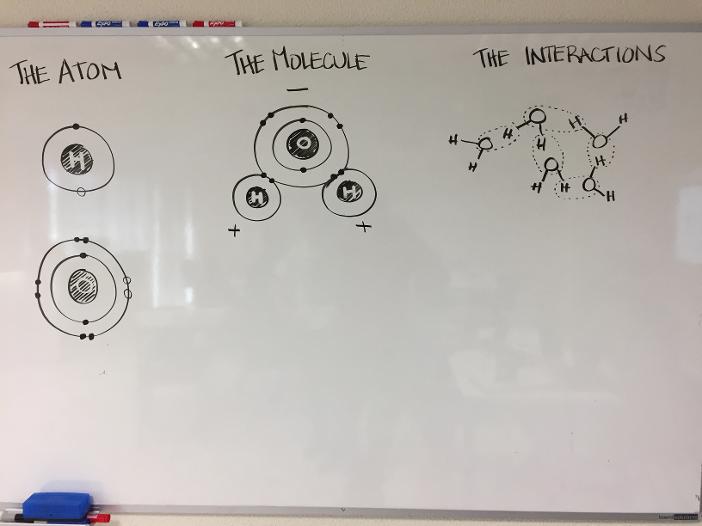 THE ATOM
THE MOLECULE
THE INTERACTIONS
H
O
−
O
H
H
+
+
H
H
O
H
H
O
H
H
O
H
H
O
H
H
O